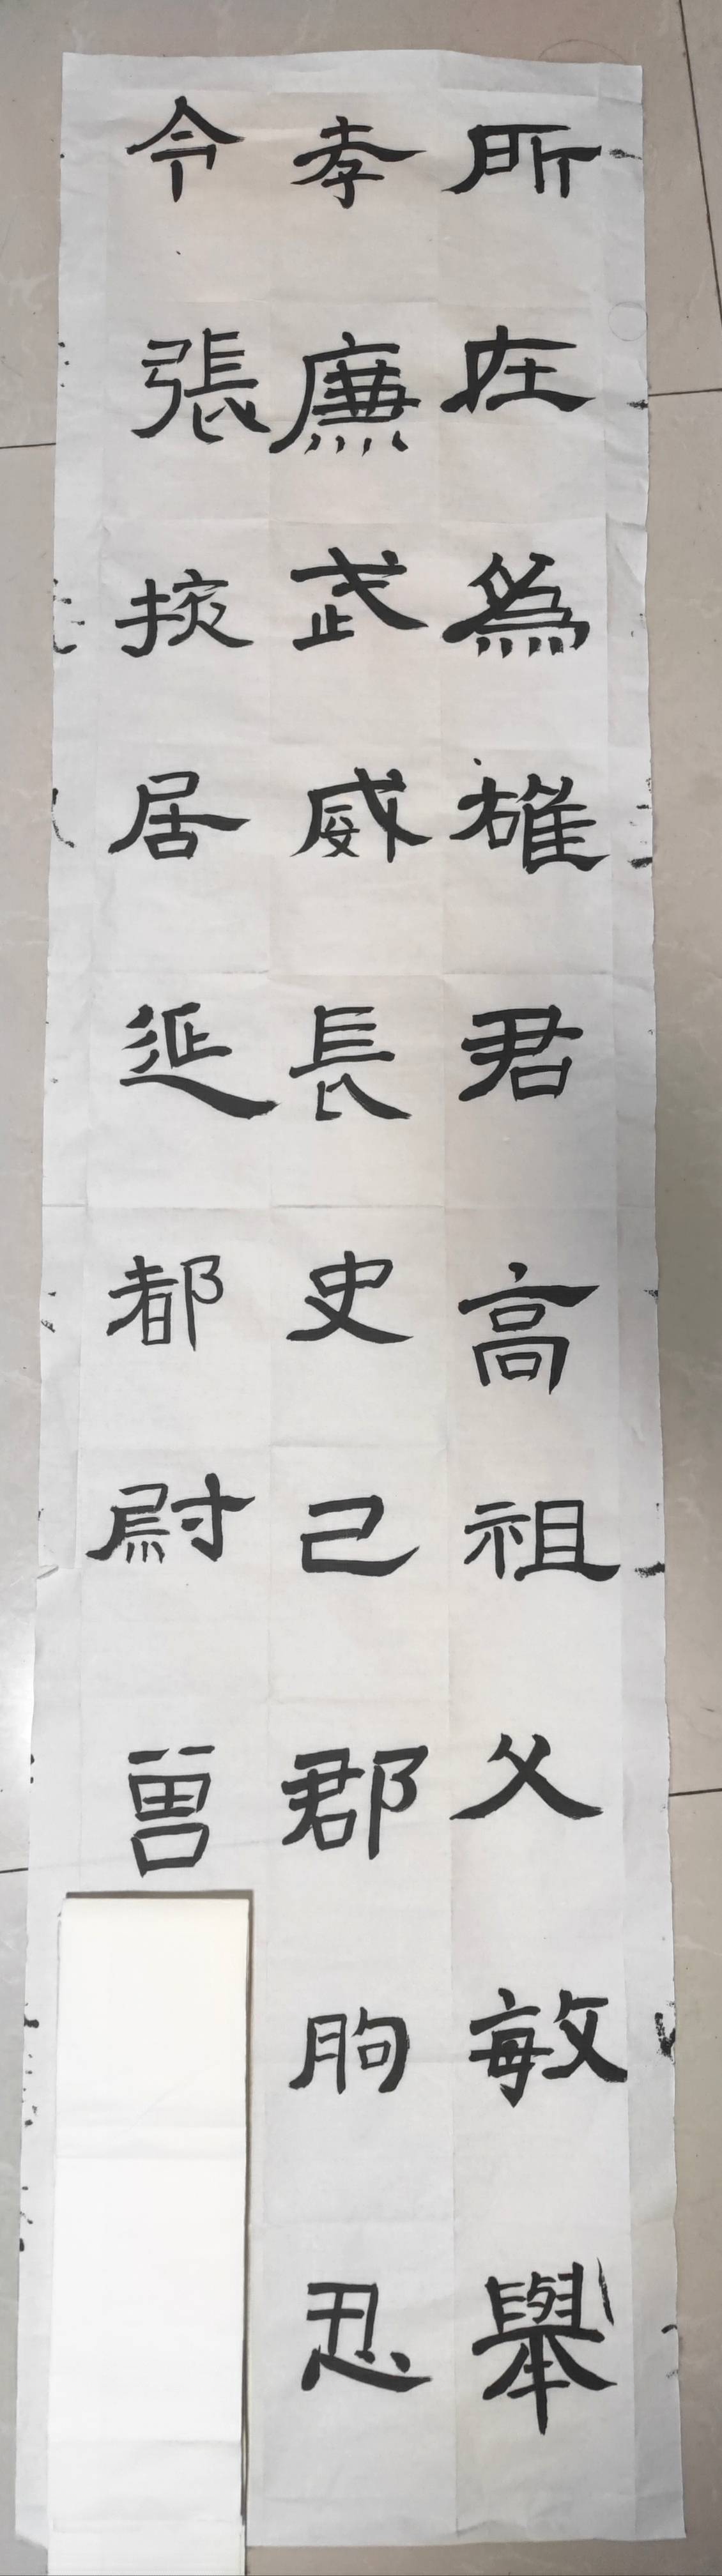 所在為雄君高祖父敏舉
孝廉武威長史己郡朐忍
令張掖居延都尉曾